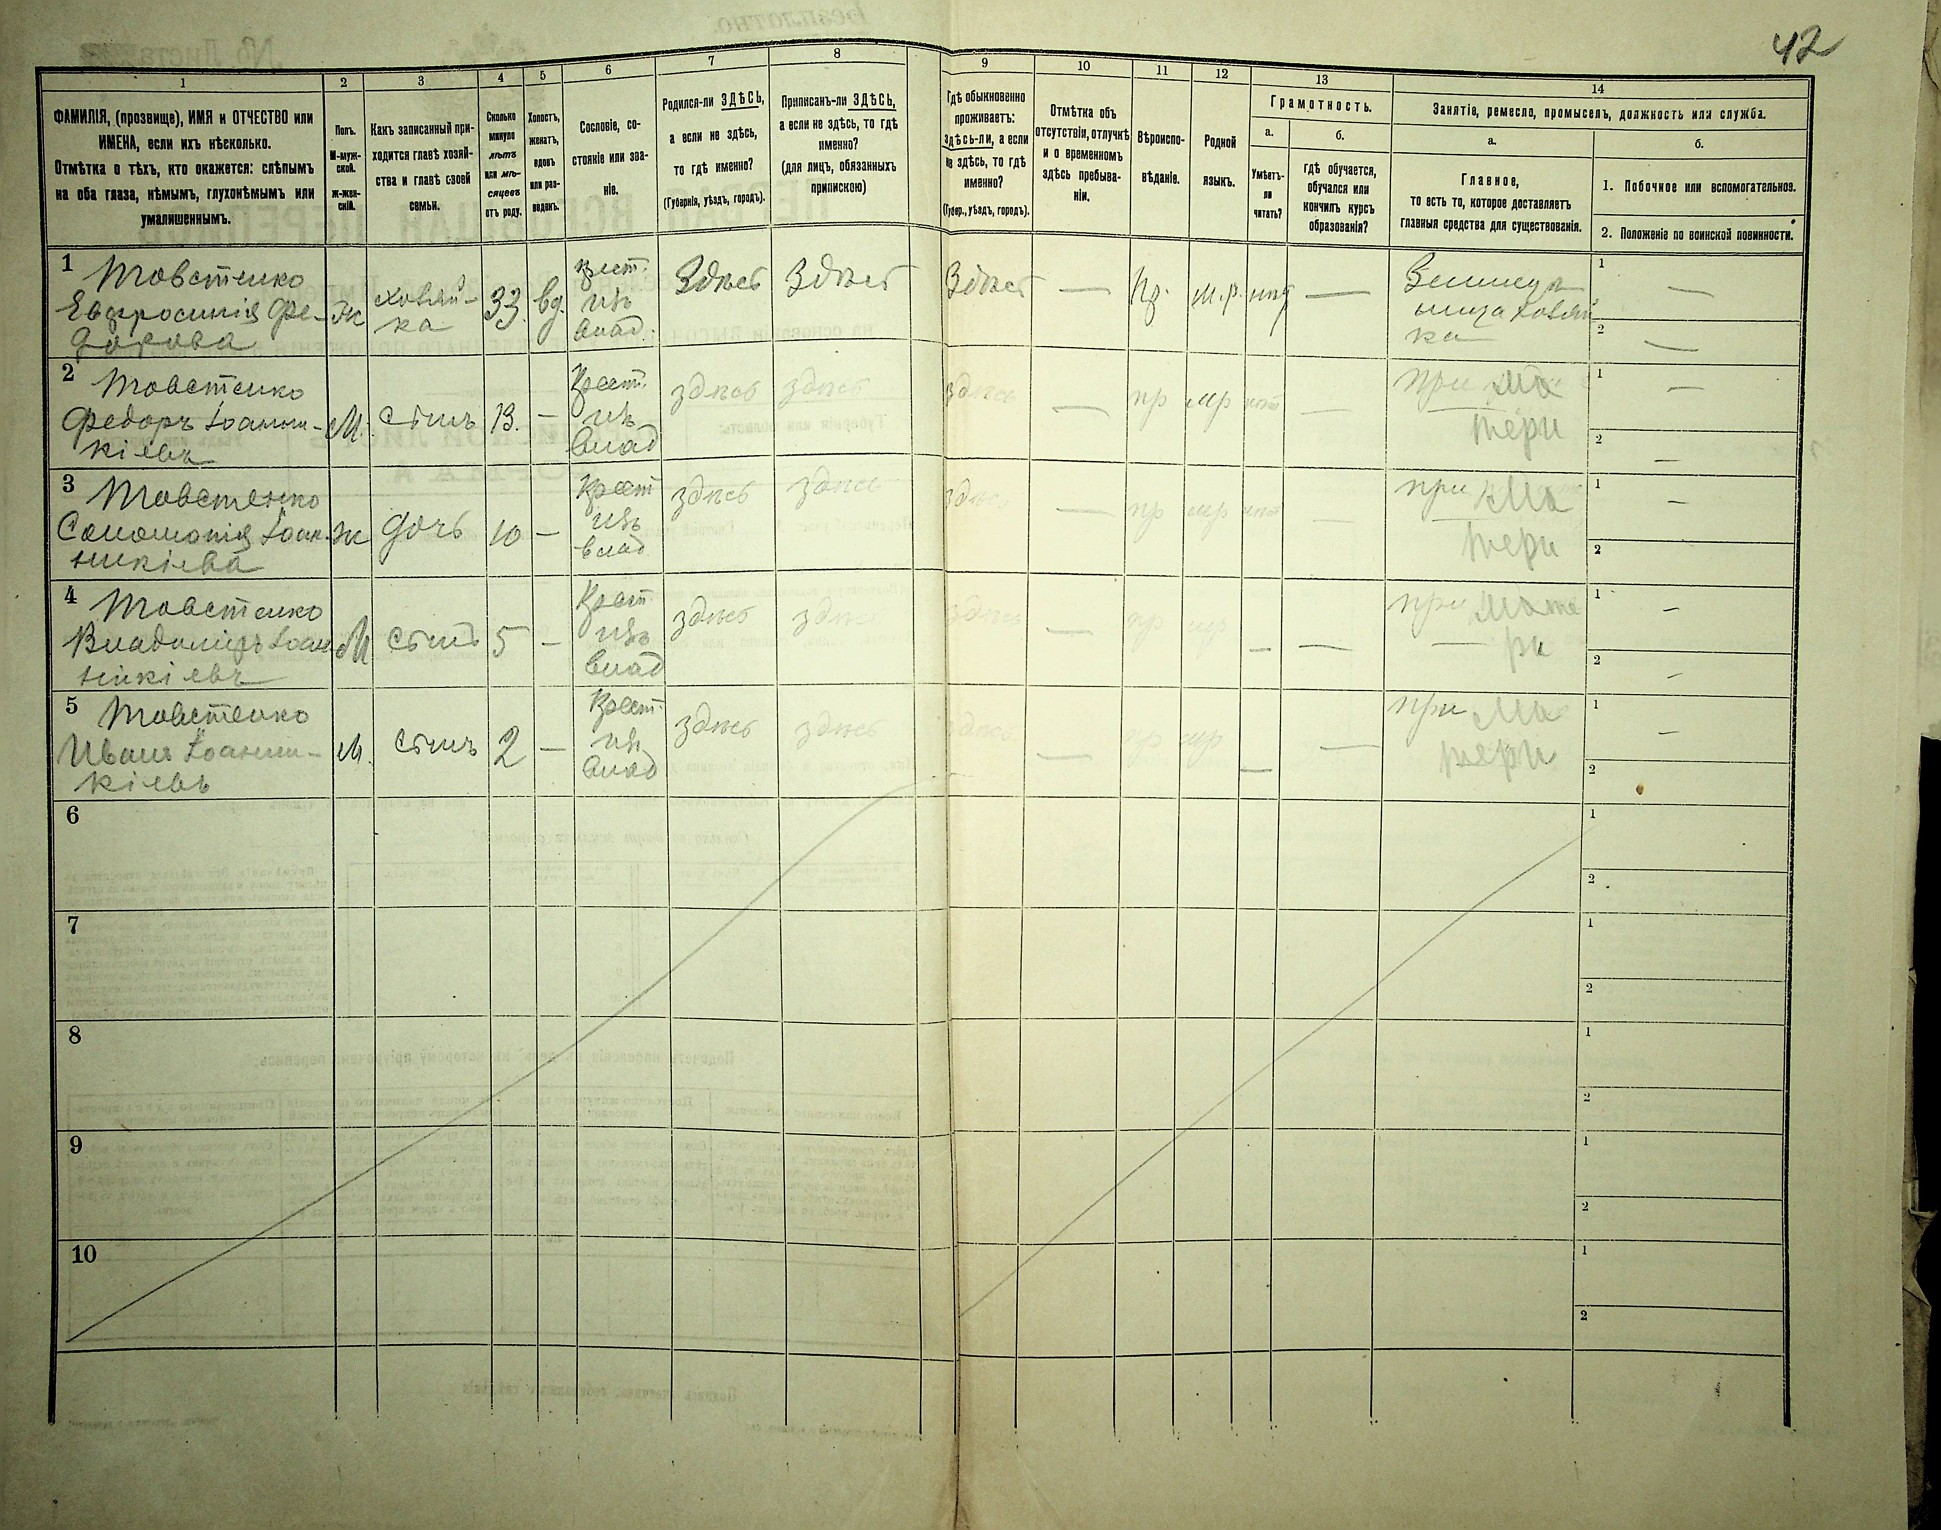 42
1
2
3
4
5
6
7
8
9
10
11
12
13
14
ФАМИЛІЯ, (прозвище), ИМЯ и ОТЧЕСТВО или
ИМЕНА, если ихъ нѣсколько.
Отмѣтка о тѣхъ, кто окажется: слѣпымъ
на оба глаза, нѣмымъ, глухонѣмымъ или
умалишеннымъ.
Полъ.
М-муж-
ской.
ж-жен-
скій.
Какъ записанный при-
ходится главѣ хозяй-
ства и главѣ своей
семьи.
Сколько
минуло
лѣтъ
или мѣ-
сяцевъ
отъ роду.
Холостъ,
женатъ,
вдовъ
или раз-
веденъ.
Сословіе, со-
стояніе или зва-
ніе.
Родился-ли ЗДѢСЬ,
а если не здѣсь,
то гдѣ именно?
(Губернія, уѣздъ, городъ).
Приписанъ-ли ЗДѢСЬ,
а если не здѣсь, то гдѣ
именно?
(для лицъ, обязанныхъ
припискою)
Гдѣ обыкновенно
проживаетъ:
здѣсь-ли, а если
не здѣсь, то гдѣ
именно?
(Губер., уѣздъ, городъ).
Отмѣтка объ
отсутствіи, отлучкѣ
и о временномъ
здѣсь пребыва-
ніи.
Вѣроиспо-
вѣданіе.
Родной
языкъ.
Грамотность.
а.
Умѣетъ-
ли
читать?
б.
гдѣ обучается,
обучался или
кончилъ курсъ
образованія?
Занятіе, ремесло, промыселъ, должность или служба.
а.
Главное,
то есть то, которое доставляетъ
главныя средства для существованія.
б.
1. Побочное или вспомогательное.
2. Положеніе по воинской повинности.
1
Товстенко
Евфросинія Фе-
дорова
Ж
хозяй-
ка
33
вд.
крест.
изъ
влад.
Здѣсь
Здѣсь
Здѣсь
—
Пр.
м.р.
нѣт
—
хозяй
ка
1 —
2 —
2
Товстенко
Федоръ Іоанни-
кіевъ
М.
сынъ
13.
—
Крест.
изъ
влад
здѣсь
здѣсь
здѣсь
—
пр
мр
нѣт
—
при ма
тери
1 —
2 —
3
Товстенко
Соломонія Іоан-
никіева
Ж
дочь
10
—
Крест
изъ
влад
здѣсь
здѣсь
здѣсь
—
пр
мр
нѣт
—
при ма
тери
1 —
2 —
4
Товстенко
Владиміръ Іоан
никіевъ
М
сынъ
5
—
Крест.
изъ
влад
здѣсь
здѣсь
здѣсь
—
пр
мр
—
—
при мате
ри
1 —
2 —
5
Товстенко
Иванъ Іоанни-
кіевъ
М.
сынъ
2
—
Крест.
изъ
влад
здѣсь
здѣсь
здѣсь
—
пр
мр
—
—
при ма
тери
1 —
2
6
1
2
7
1
2
8
1
2
9
1
2
10
1
2